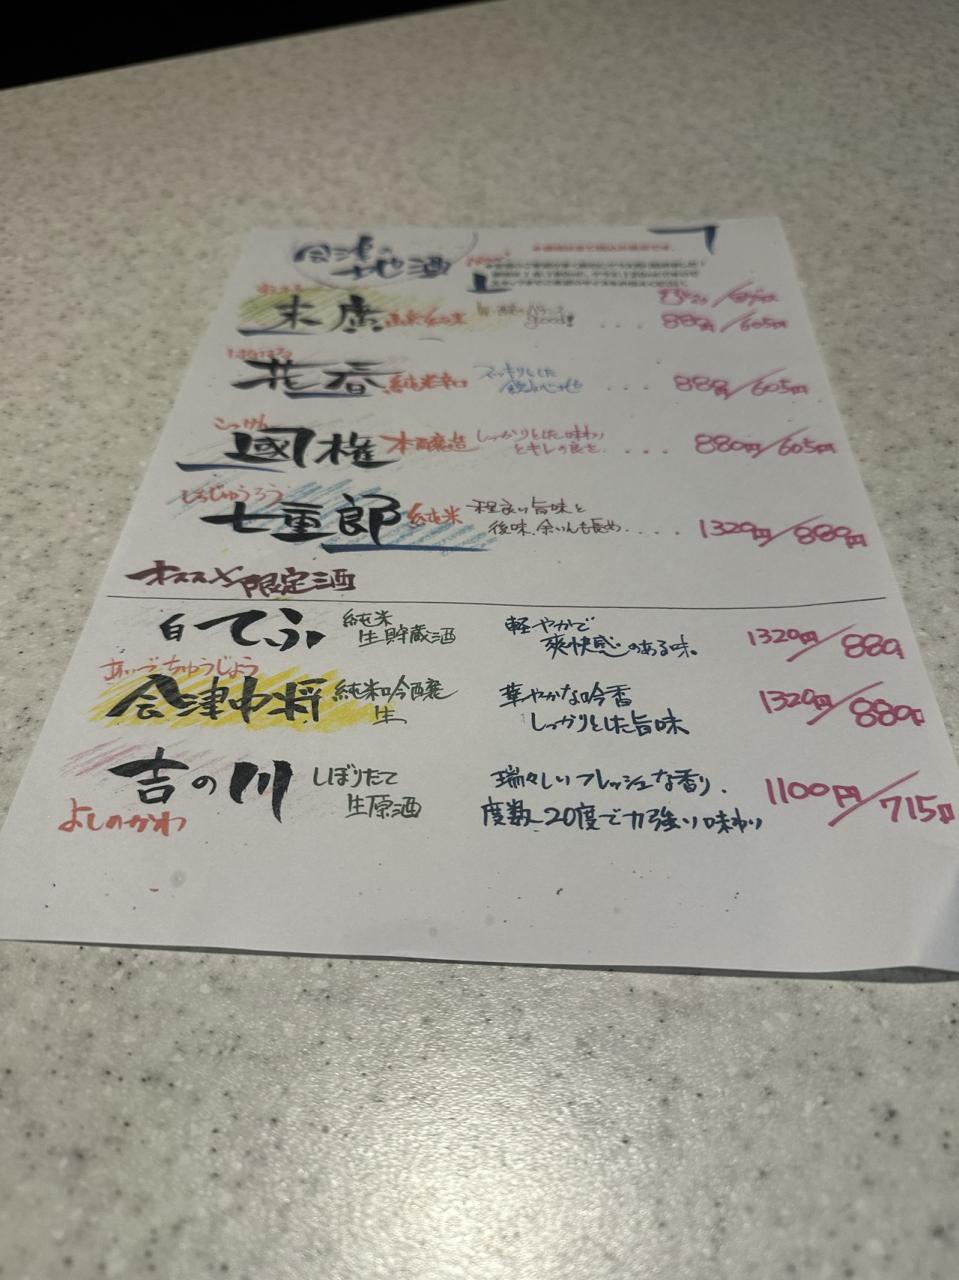 会津の
地酒
すえひろ
末廣 純米 good! .... 880円/605円
はなはる
花春 純米辛口 スッキリした .... 880円/605円
こっけん
國権 本醸造 しっかりとした味わい
とキレの良さ..... 880円/605円
しちじゅうろう
七重郎 純米 程良い旨味と
後味、余いんも長め.... 1320円/880円
オススメ限定酒
白てふ 純米
生貯蔵酒 軽やかで
爽快感のある味。 1320円/880円
あいづちゅうじょう
会津中将 純米吟醸
生 華やかな吟香
しっかりとした旨味 1320円/880円
吉の川 しぼりたて
生原酒 瑞々しいフレッシュな香り、
よしのかわ 度数20度で力強い味わい 1100円/715円